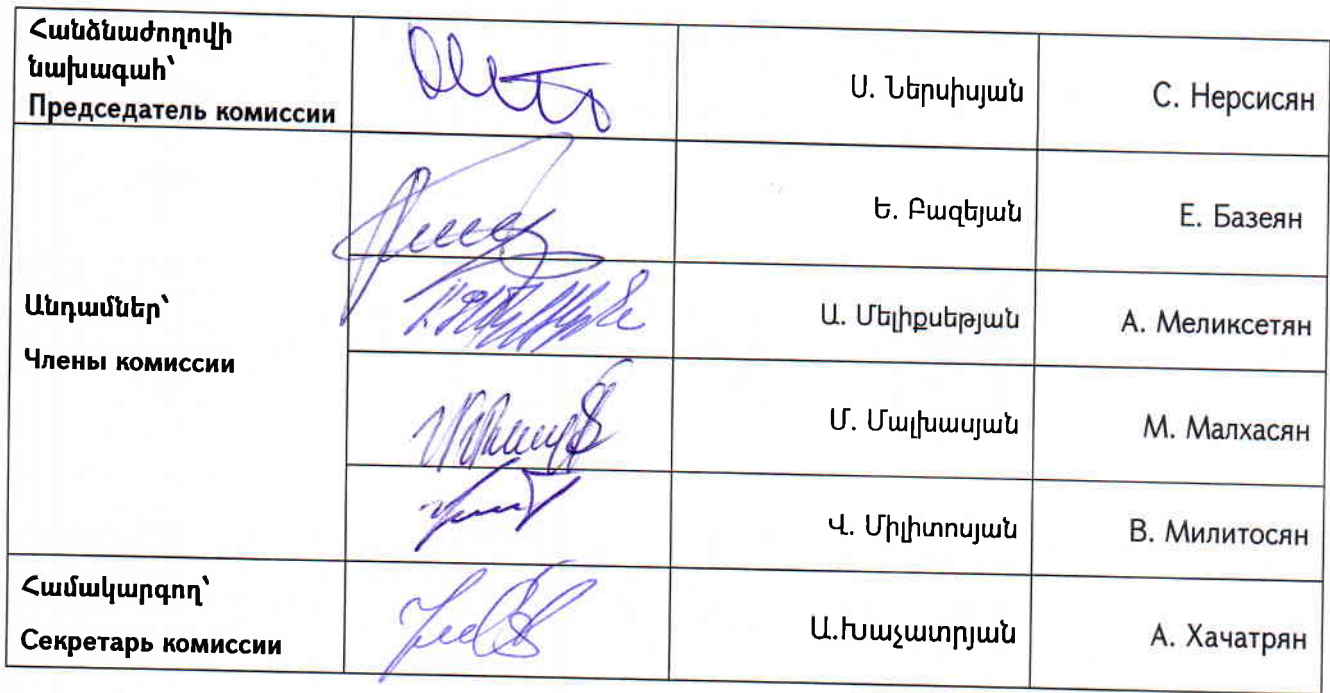 Հանձնաժողովի
նախագահ՝
Председатель комиссии
Ս. Ներսիսյան
С. Нерсисян
Ե. Բազեյան
Е. Базеян
Անդամներ՝
Члены комиссии
Ա. Մելիքսեթյան
А. Меликсетян
Մ. Մալխասյան
М. Малхасян
Վ. Միլիտոսյան
В. Милитосян
Համակարգող՝
Секретарь комиссии
Ա.Խաչատրյան
А. Хачатрян